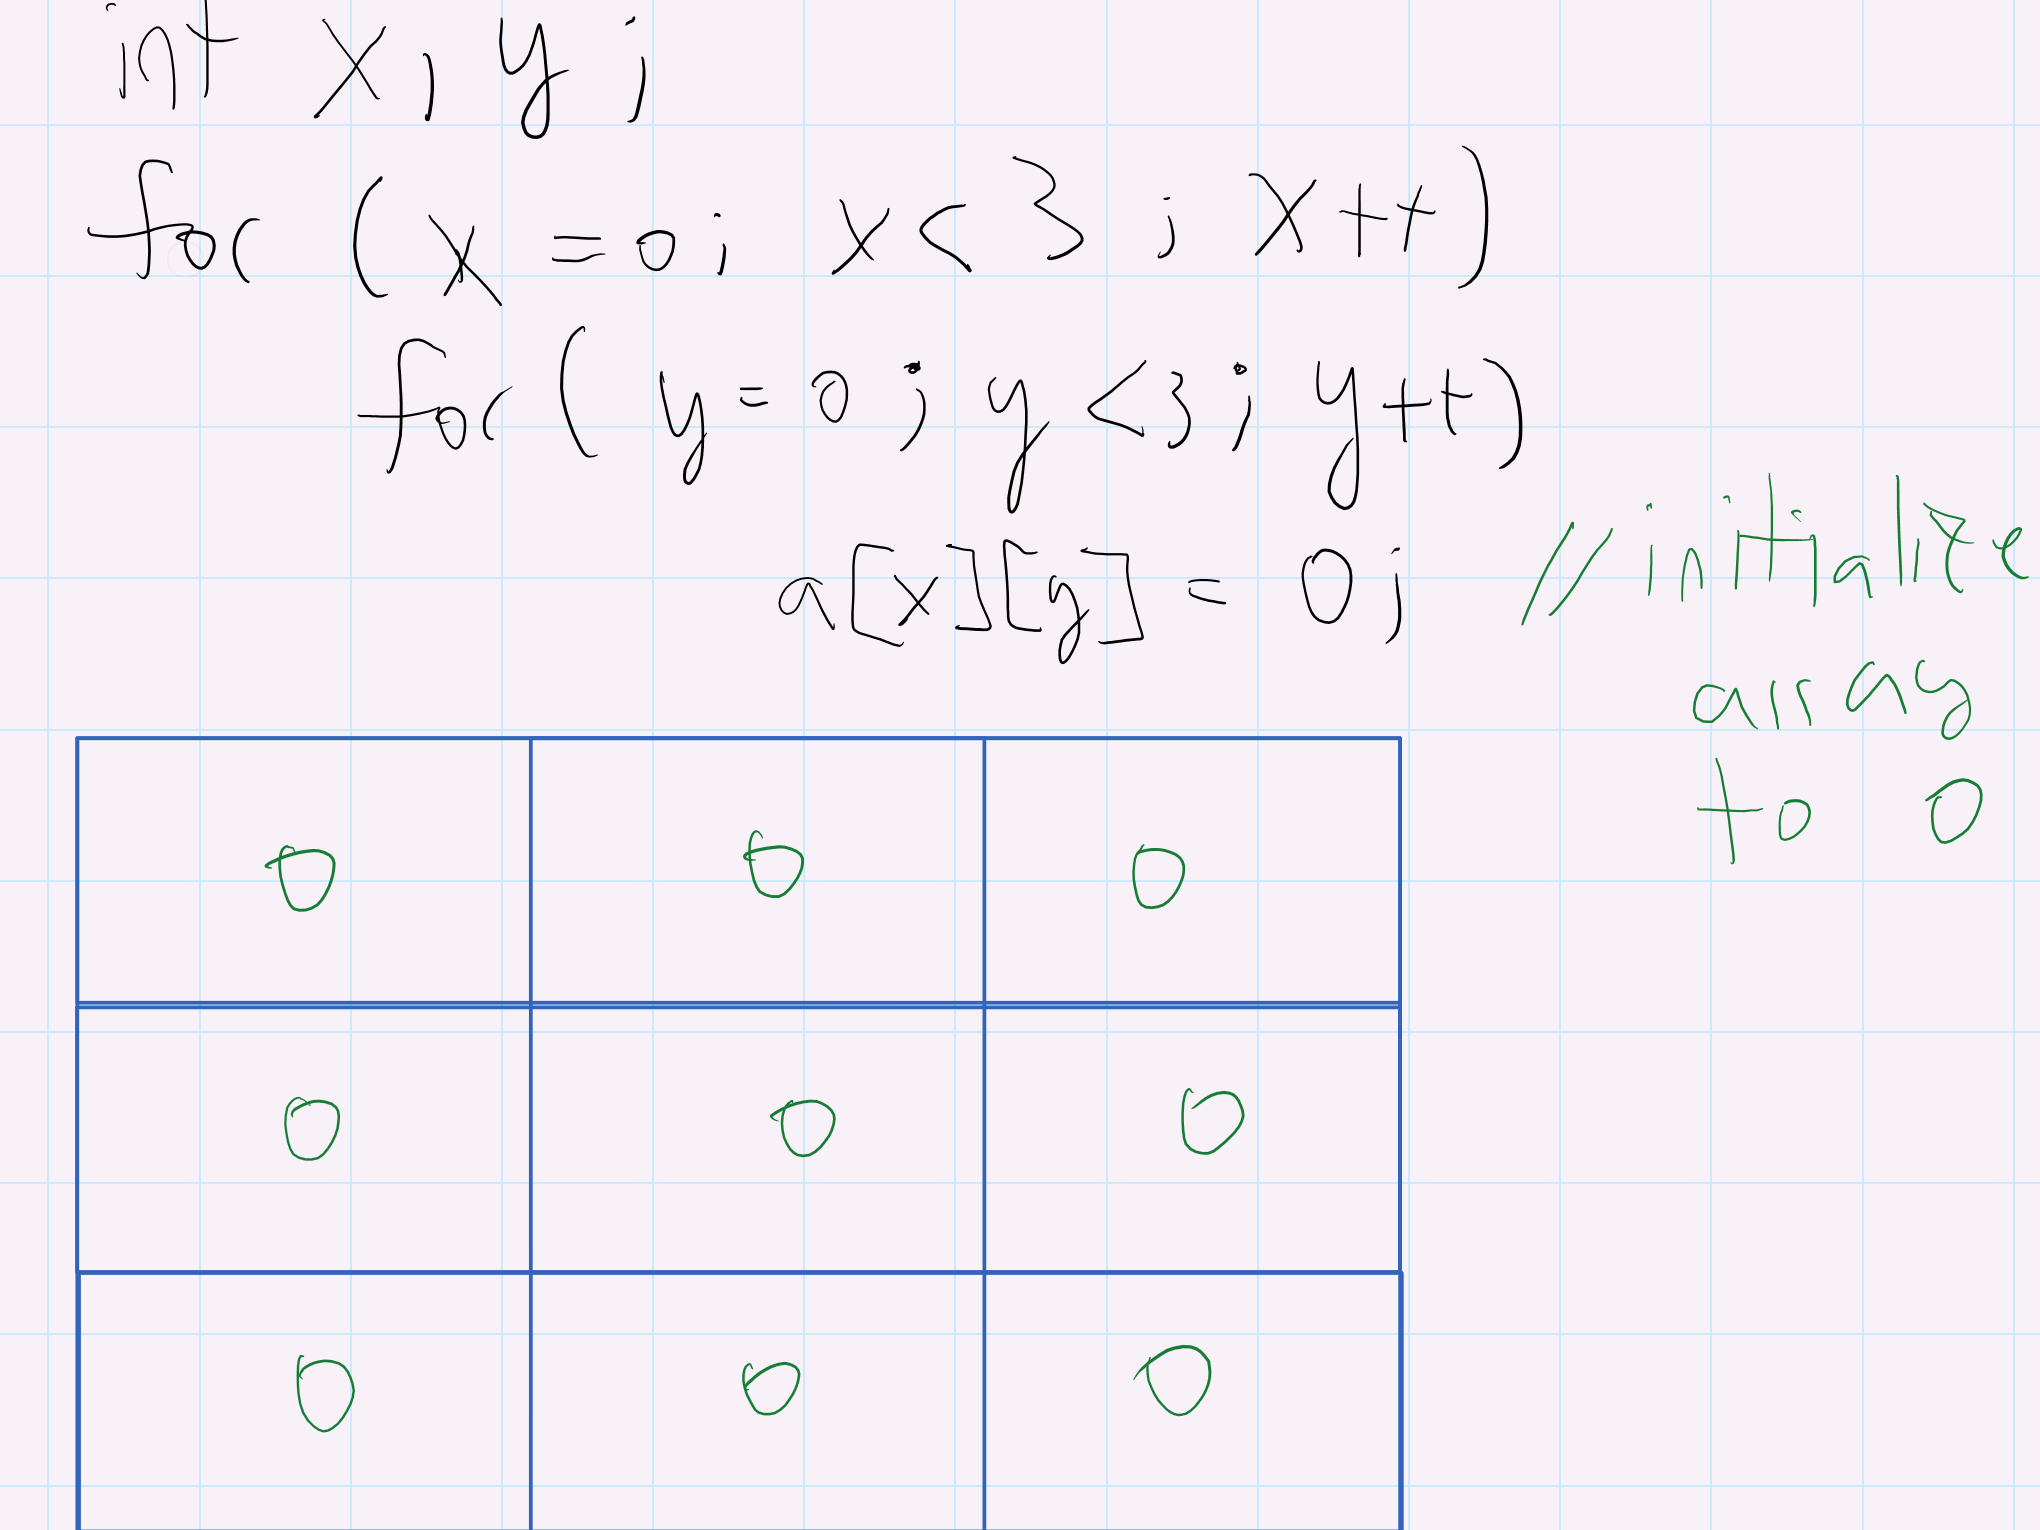 int x, y;
for (x = 0; x < 3; x++)
for (y = 0; y < 3; y++)
a[x][y] = 0; // initialize
array
to 0
0 0 0
0 0 0
0 0 0